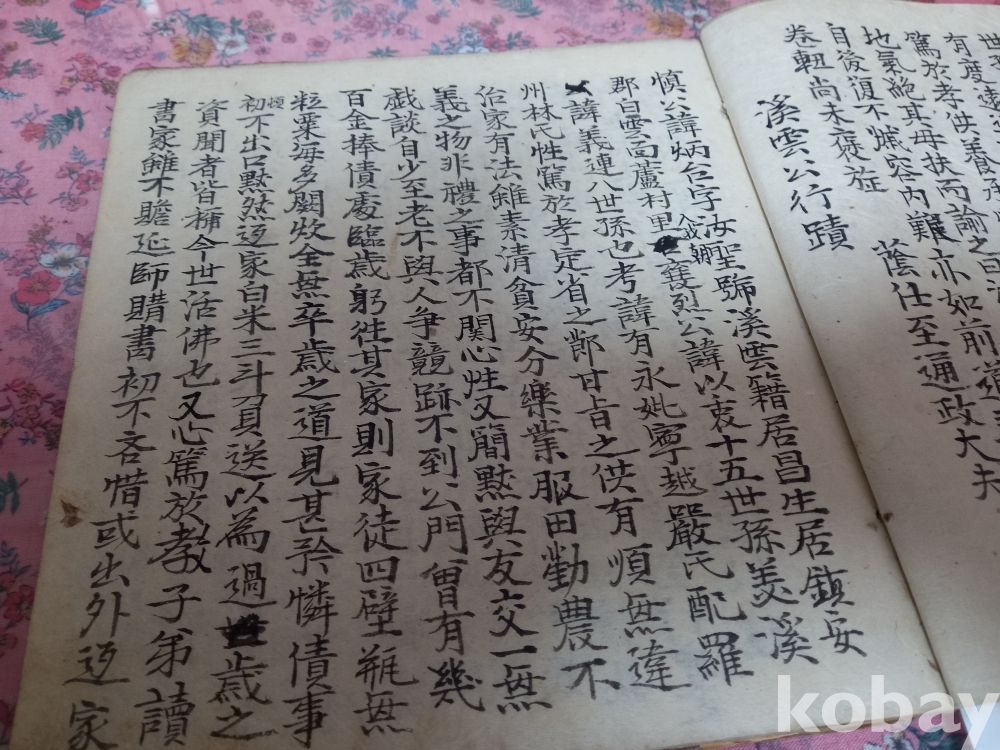 世
有度遠
篤於孝供養
地氣絶其母扶而諭之曰
自後復不慼容内難亦如前道
卷軸尚未褒旌 蔭仕至通政大夫
溪雲公行蹟
慎公諱炳台字汝聖號溪雲籍居昌生居鎮安
郡白雲面蘆村里入或朝護烈公諱以衷十五世孫美溪
諱義連八世孫也考諱有永妣寧越嚴氏配羅
州林氏性篤於孝定省之節甘旨之供有順無違
治家有法雖素清貧安分樂業服田勤農不
義之物非禮之事都不関心性又簡黙與友交一無
戯談自少至老不與人争競跡不到公門曾有幾
百金捧債處臨歳躬徃其家則家徒四壁瓶無
粒粟海多関收全無卒歳之道見甚矜憐債事
初頻不出口黙然还家白米三斗負送以為過歳之
資聞者皆稱今世活佛也又心篤於教子弟讀
書家雖不贍延師購書初不吝惜或出外还家
kobay